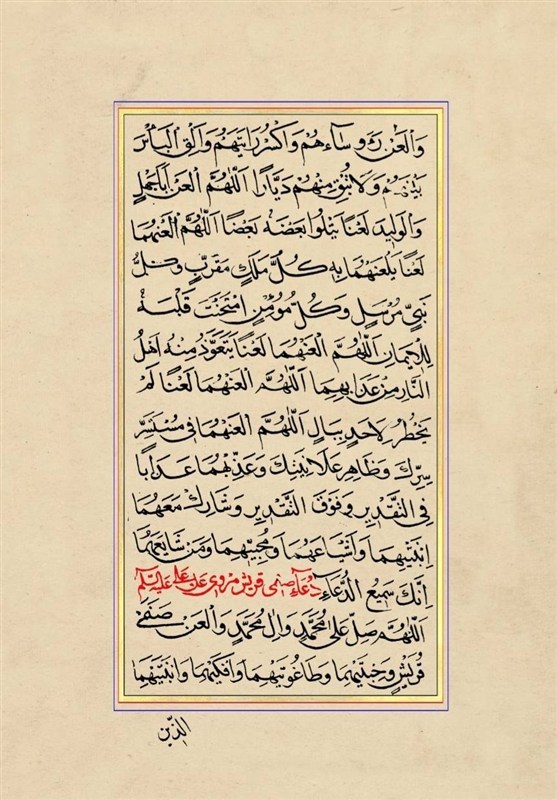 وَالْعَنْ رُؤَسَاءَهُمْ وَاكْسِرْ رَايَتَهُمْ وَأَلْقِ الْبَأْسَ
بَيْنَهُمْ وَلَا تُبْقِ مِنْهُمْ دَيَّارًا اَللّٰهُمَّ الْعَنْ أَبَاجَهْلٍ
وَالْوَلِيدَ لَعْنًا يَتْلُوا بَعْضَهُ بَعْضًا اَللّٰهُمَّ الْعَنْهُمَا
لَعْنًا يَلْعَنُهُمَا بِهِ كُلُّ مَلَكٍ مُقَرَّبٍ وَكُلُّ
نَبِيٍّ مُرْسَلٍ وَكُلُّ مُؤْمِنٍ امْتَحَنْتَ قَلْبَهُ
لِلْإِيمَانِ اَللّٰهُمَّ الْعَنْهُمَا لَعْنًا يَتَعَوَّذُ مِنْهُ أَهْلُ
النَّارِ مِنْ عَذَابِهِمَا اَللّٰهُمَّ الْعَنْهُمَا لَعْنًا لَمْ
يَخْطُرْ لِأَحَدٍ بِبَالٍ اَللّٰهُمَّ الْعَنْهُمَا فِي مُسْتَسَرِّ
سِرِّكَ وَظَاهِرِ عَلَانِيَتِكَ وَعَذِّبْهُمَا عَذَابًا
فِي التَّقْدِيرِ وَفَوْقَ التَّقْدِيرِ وَشَارِكْ مَعَهُمَا
ابْنَتَيْهِمَا وَأَشْيَاعَهُمَا وَمُحِبِّيهِمَا وَمَنْ شَايَعَهُمَا
إِنَّكَ سَمِيعُ الدُّعَاءِ دُعَاءِ صَنَمَي قُرَيْش مروي عن علي عليه السلام
اَللّٰهُمَّ صَلِّ عَلَى مُحَمَّدٍ وَآلِ مُحَمَّدٍ وَالْعَنْ صَنَمَيْ
قُرَيْشٍ وَجِبْتَيْهِمَا وَطَاغُوتَيْهِمَا وَأَفَّاكَيْهِمَا وَابْنَتَيْهِمَا
الذين